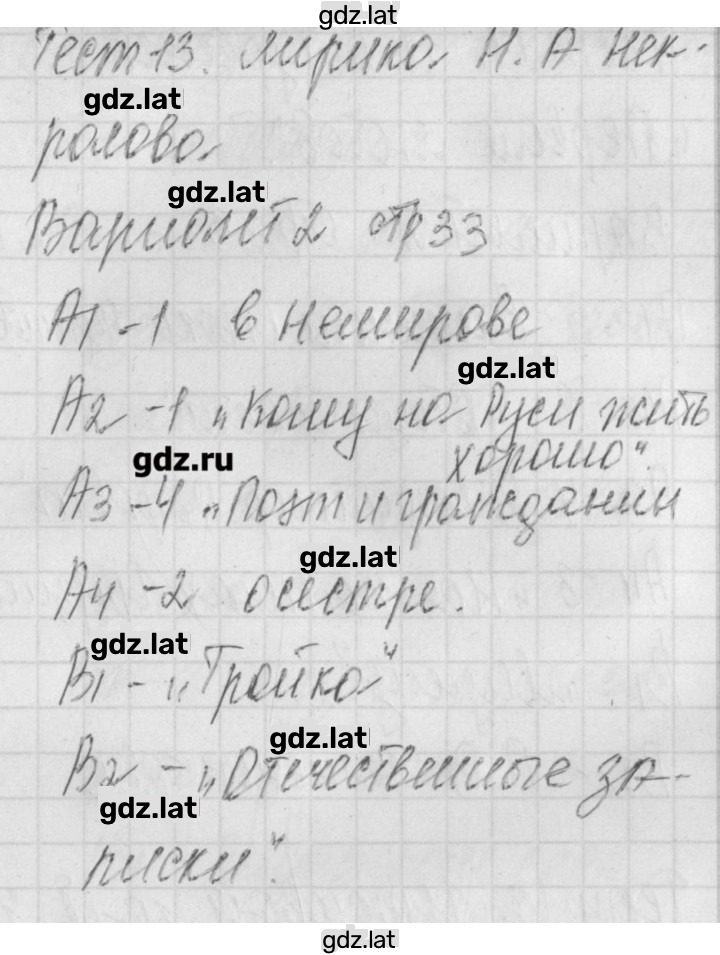 gdz.lat
Тест 13. Лирика Н. А Нек-
gdz.lat
расова
gdz.lat
Вариант 2 стр 33
А1 - 1 в Немирове
gdz.lat
А2 - 1 "Кому на Руси жить
хорошо".
gdz.ru
А3 - 4 "Поэт и гражданин
gdz.lat
А4 - 2 о сестре.
gdz.lat
В1 - "Тройка"
gdz.lat
В2 - "Отечественные за-
gdz.lat
писки".
gdz.lat